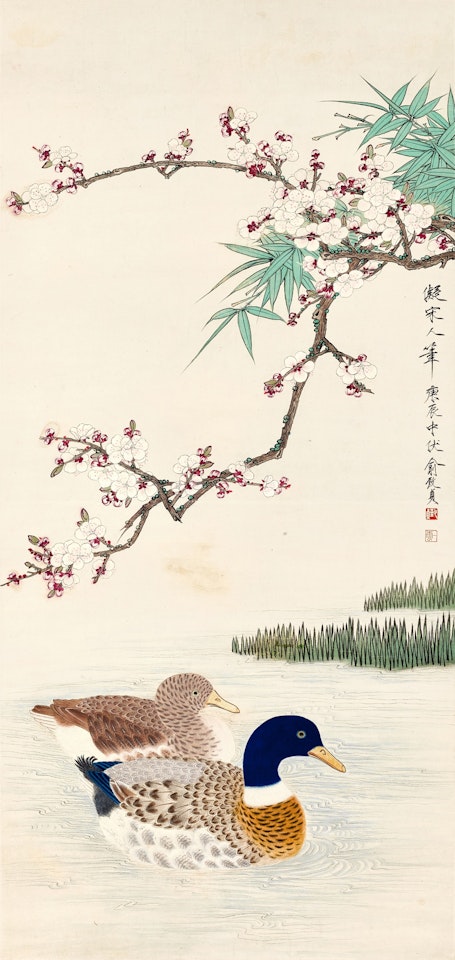 擬宋人筆 庚辰中伏俞致貞